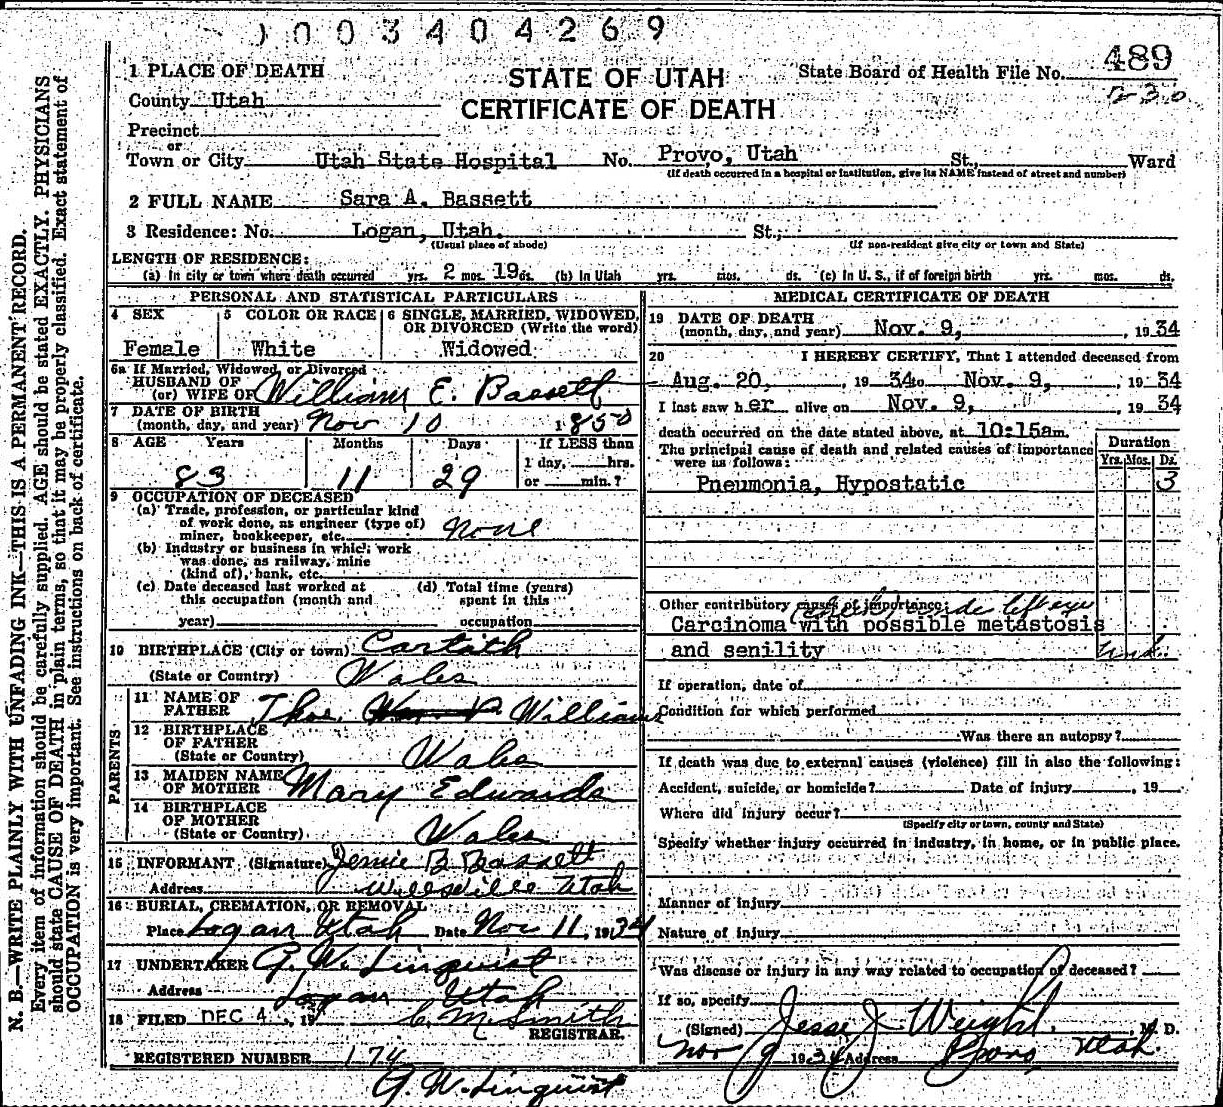 0003404269
N. B.—WRITE PLAINLY WITH UNFADING INK—THIS IS A PERMANENT RECORD.
Every item of information should be carefully supplied. AGE should be stated EXACTLY. PHYSICIANS
should state CAUSE OF DEATH in plain terms, so that it may be properly classified. Exact statement of
OCCUPATION is very important. See instructions on back of certificate.
STATE OF UTAH
CERTIFICATE OF DEATH
State Board of Health File No. 489
230
1 PLACE OF DEATH
County Utah
Precinct
or
Town or City Utah State Hospital No. Provo, Utah St., Ward
(If death occurred in a hospital or institution, give its NAME instead of street and number)
2 FULL NAME Sara A. Bassett
3 Residence: No. Logan, Utah. St.,
(Usual place of abode) (If non-resident give city or town and State)
LENGTH OF RESIDENCE:
(a) In city or town where death occurred yrs. 2 mos. 19 ds. (b) In Utah yrs. mos. ds. (c) In U. S., if of foreign birth yrs. mos. ds.
PERSONAL AND STATISTICAL PARTICULARS
4 SEX
Female
5 COLOR OR RACE
White
6 SINGLE, MARRIED, WIDOWED,
OR DIVORCED (Write the word)
Widowed
6a If Married, Widowed, or Divorced
HUSBAND OF
(or) WIFE OF William E. Bassett
7 DATE OF BIRTH
(month, day, and year) Nov 10 1850
8 AGE Years Months Days If LESS than
1 day, hrs.
83 11 29 or min.?
9 OCCUPATION OF DECEASED
(a) Trade, profession, or particular kind
of work done, as engineer (type of)
miner, bookkeeper, etc. none
(b) Industry or business in which work
was done, as railway, mine
(kind of), bank, etc.
(c) Date deceased last worked at
this occupation (month and
year)
(d) Total time (years)
spent in this
occupation
10 BIRTHPLACE (City or town)
(State or Country) Wales
PARENTS
11 NAME OF
FATHER Thos. Williams
12 BIRTHPLACE
OF FATHER
(State or Country) Wales
13 MAIDEN NAME
OF MOTHER Mary Edwards
14 BIRTHPLACE
OF MOTHER
(State or Country) Wales
15 INFORMANT (Signature) Jennie B Bassett
Address Wellsville Utah
16 BURIAL, CREMATION, OR REMOVAL
Place Logan Utah Date Nov 11, 1934
17 UNDERTAKER G. W. Linquist
Address Logan Utah
18 FILED DEC 4, 19 C. M. Smith
REGISTRAR.
REGISTERED NUMBER 174
G. W. Linquist
MEDICAL CERTIFICATE OF DEATH
19 DATE OF DEATH
(month, day, and year) Nov. 9, 1934
20 I HEREBY CERTIFY, That I attended deceased from
Aug. 20, 1934 to Nov. 9, 1934
I last saw her alive on Nov. 9, 1934
death occurred on the date stated above, at 10:15am.
The principal cause of death and related causes of importance
were as follows:
Duration
Yrs. Mos. Ds.
Pneumonia, Hypostatic 3
Other contributory causes of importance: side left eye
Carcinoma with possible metastosis
and senility
If operation, date of
Condition for which performed
Was there an autopsy?
If death was due to external causes (violence) fill in also the following:
Accident, suicide, or homicide? Date of injury , 19
Where did injury occur?
(Specify city or town, county and State)
Specify whether injury occurred in industry, in home, or in public place.
Manner of injury
Nature of injury
Was disease or injury in any way related to occupation of deceased?
If so, specify
(Signed) Jesse J Weight M. D.
Nov 9 1934 Address Provo Utah